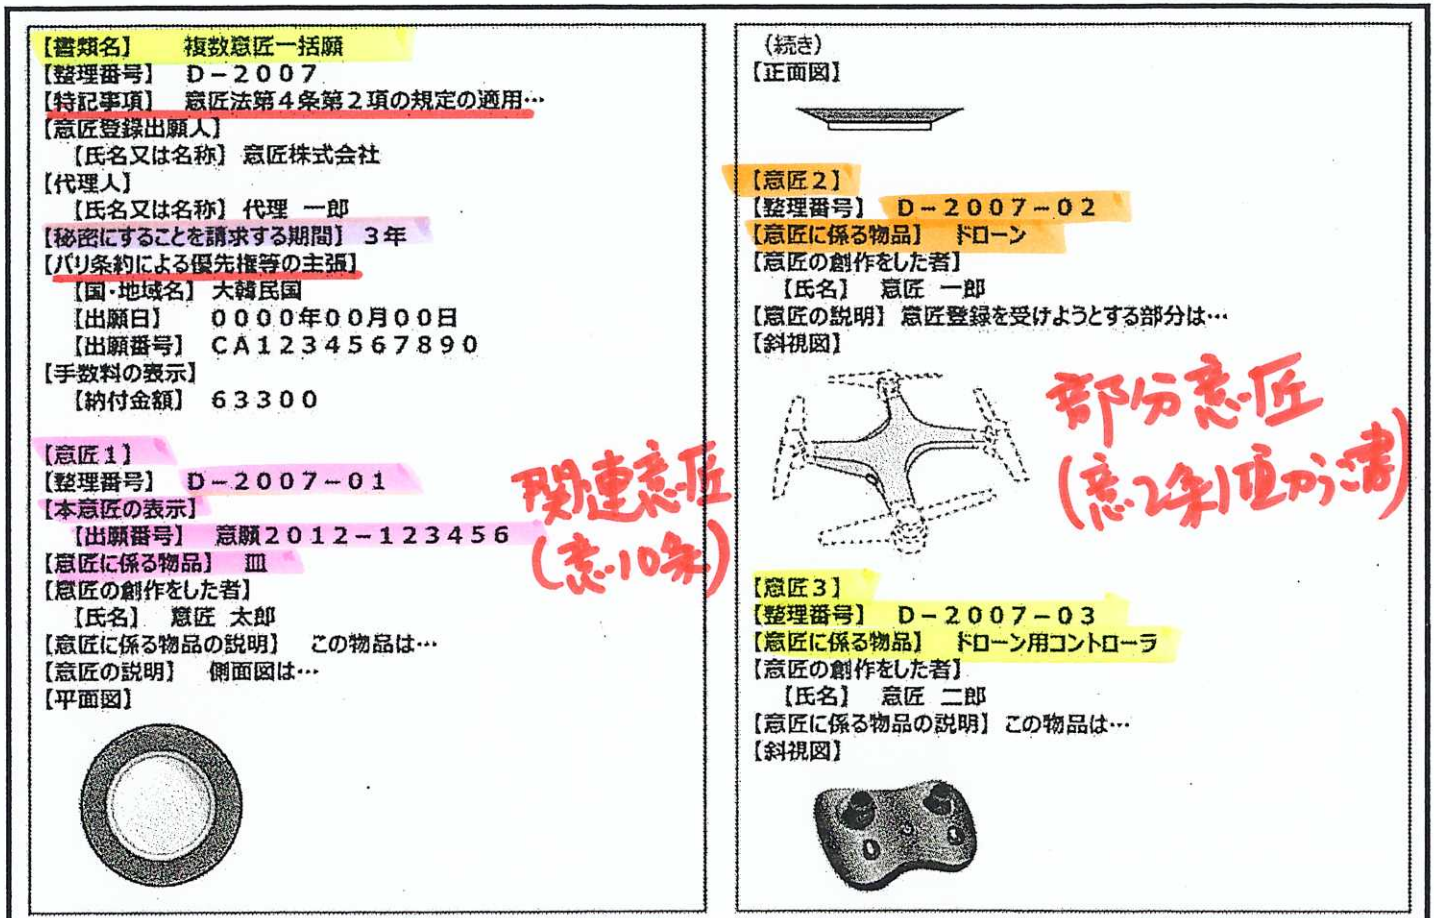 【書類名】　複数意匠一括願
【整理番号】　D－2007
【特記事項】　意匠法第4条第2項の規定の適用…
【意匠登録出願人】
【氏名又は名称】 意匠株式会社
【代理人】
【氏名又は名称】 代理 一郎
【秘密にすることを請求する期間】 3年
【パリ条約による優先権等の主張】
【国・地域名】 大韓民国
【出願日】　0000年00月00日
【出願番号】　CA1234567890
【手数料の表示】
【納付金額】　63300
【意匠1】
【整理番号】　D－2007－01
【本意匠の表示】
【出願番号】　意願2012－123456
【意匠に係る物品】　皿
【意匠の創作をした者】
【氏名】　意匠 太郎
【意匠に係る物品の説明】　この物品は…
【意匠の説明】　側面図は…
【平面図】
関連意匠
(意10条)
（続き）
【正面図】
【意匠2】
【整理番号】　D－2007－02
【意匠に係る物品】　ドローン
【意匠の創作をした者】
【氏名】　意匠 一郎
【意匠の説明】 意匠登録を受けようとする部分は…
【斜視図】
部分意匠
(意2条1項かっこ書)
【意匠3】
【整理番号】　D－2007－03
【意匠に係る物品】　ドローン用コントローラ
【意匠の創作をした者】
【氏名】　意匠 二郎
【意匠に係る物品の説明】 この物品は…
【斜視図】